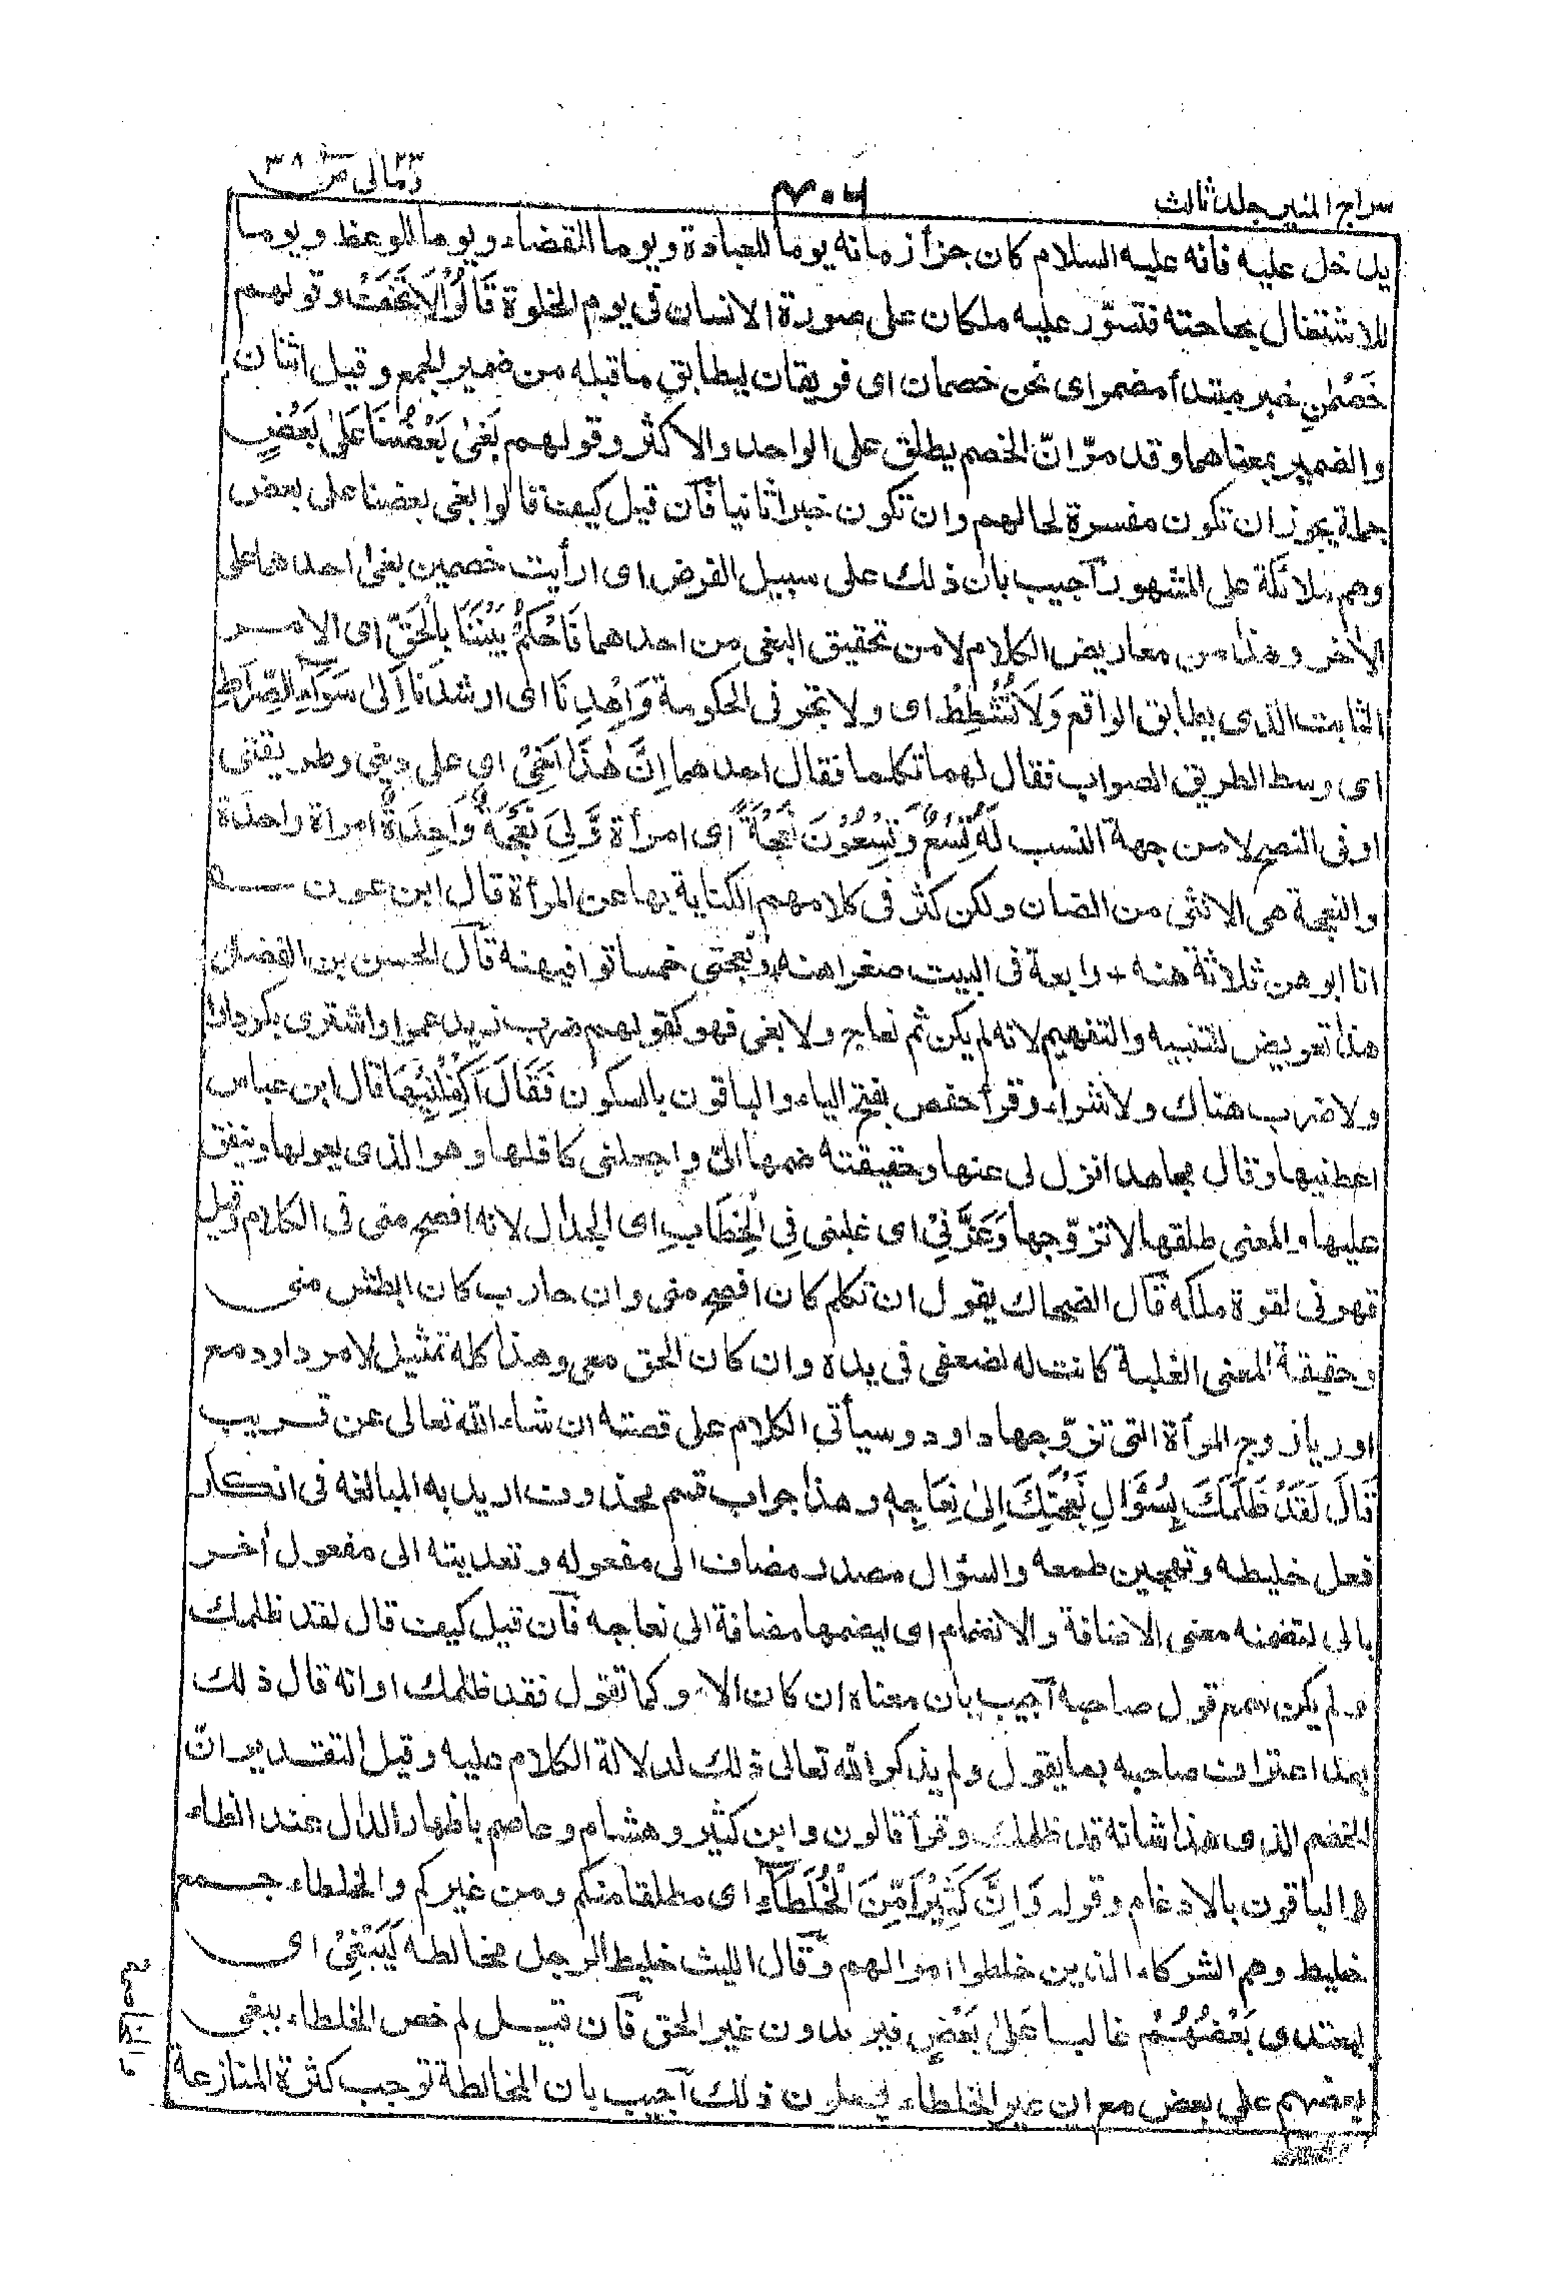 سراج المنير جلد ثالث
٧٠٤
ومالى ٢٣ ص ٣٨
يدخل عليه فانه عليه السلام كان جزأ زمانه يوما للعبادة ويوما للقضاء ويوما للوعظ ويوما
للاشتغال بحاجته فتسوّر عليه ملكان على صورة الانسان فى يوم الخلوة قَالُوْا لَا تَخَفْ وقولهم
خَصْمٰنِ خبر مبتدأ مضمر اى نحن خصمان اى فريقان ليطابق ما قبله من ضمير الجمع وقيل اثنان
والضمير بمعناهما وقد مرّ انّ الخصم يطلق على الواحد والاكثر وقولهم بَغٰى بَعْضُنَا عَلٰى بَعْضٍ
جملة يجوز ان تكون مفسرة لحالهم وان تكون خبرا ثانيا فان قيل كيف قالوا بغى بعضنا على بعض
وهم ملائكة على المشهور اجيب بان ذلك على سبيل الفرض اى ارأيت خصمين بغى احدهما على
الاخر وهذا من معاريض الكلام لا من تحقيق البغى من احدهما فَاحْكُمْ بَيْنَنَا بِالْحَقِّ اى الامر
الثابت الذى يطابق الواقع وَلَا تُشْطِطْ اى ولا تجر فى الحكومة وَاهْدِنَا اى ارشدنا اِلٰى سَوَآءِ الصِّرَاطِ
اى وسط الطريق الصواب فقال لهما تكلما فقال احدهما اِنَّ هٰذَا اَخِىْ اى على دينى وطريقتى
او فى النصح لا من جهة النسب لَهٗ تِسْعٌ وَّتِسْعُوْنَ نَعْجَةً اى امرأة وَّلِىَ نَعْجَةٌ وَّاحِدَةٌ امرأة واحدة
والنعجة هى الانثى من الضان ولكن كثر فى كلامهم الكناية بها عن المرأة قال ابن عون ـــه
انا ابوهن ثلاثة هنه + رابعة فى البيت صغراهنه + ونعجتى خمسا توافيهنه قال الحسن بن الفضل
هذا تعريض للتنبيه والتفهيم لانه لم يكن ثم نعاج ولا بغى فهو كقولهم ضرب زيد عمرا واشترى بكر دارا
ولا ضرب هناك ولا شراء وقرأ حفص بفتح الياء والباقون بالسكون فَقَالَ اَكْفِلْنِيْهَا قال ابن عباس
اعطنيها وقال مجاهد انزل لى عنها وحقيقته ضمها الىّ واجعلنى كافلها وهو الذى يعولها وينفق
عليها والمعنى طلقها لاتزوّجها وَعَزَّنِىْ اى غلبنى فِى الْخِطَابِ اى الجدال لانه افصح منى فى الكلام وقيل
قهرنى لقوة ملكه قال الضحاك يقول ان تكلم كان افصح منى وان حارب كان ابطش منى
وحقيقة المعنى الغلبة كانت له لضعفى فى يده وان كان الحق معى وهذا كله تمثيل لامر داود مع
اوريا زوج المرأة التى تزوّجها داود وسيأتى الكلام على قصته ان شاء الله تعالى عن قريب
قَالَ لَقَدْ ظَلَمَكَ بِسُؤَالِ نَعْجَتِكَ اِلٰى نِعَاجِهٖ وهذا جواب قسم محذوف اريد به المبالغة فى انكار
فعل خليطه وتهجين طمعه والسؤال مصدر مضاف الى مفعوله وتعديته الى مفعول أخر
بالى لتضمنه معنى الاضافة والانضمام اى ليضمها مضافة الى نعاجه فان قيل كيف قال لقد ظلمك
ولم يكن سمع قول صاحبه اجيب بان معناه ان كان الامر كما تقول فقد ظلمك او انه قال ذلك
بعد اعتراف صاحبه بما يقول ولم يذكر الله تعالى ذلك لدلالة الكلام عليه وقيل التقدير انّ
الخصم الذى هذا شانه قد ظلمك وقرأ قالون وابن كثير وهشام وعاصم باظهار الدال عند الظاء
والباقون بالادغام وقوله وَاِنَّ كَثِيْرًا مِّنَ الْخُلَطَآءِ اى مطلقا منكم ومن غيركم والخلطاء جمع
خليط وهم الشركاء الذين خلطوا اموالهم وقال الليث خليط الرجل مخالطه لَيَبْغِىْ اى
ليعتدى بَعْضُهُمْ غالبا عَلٰى بَعْضٍ فيريدون غير الحق فان قيل لم خص الخلطاء ببغى
بعضهم على بعض مع ان غير الخلطاء يفعلون ذلك اجيب بان المخالطة توجب كثرة المنازعة